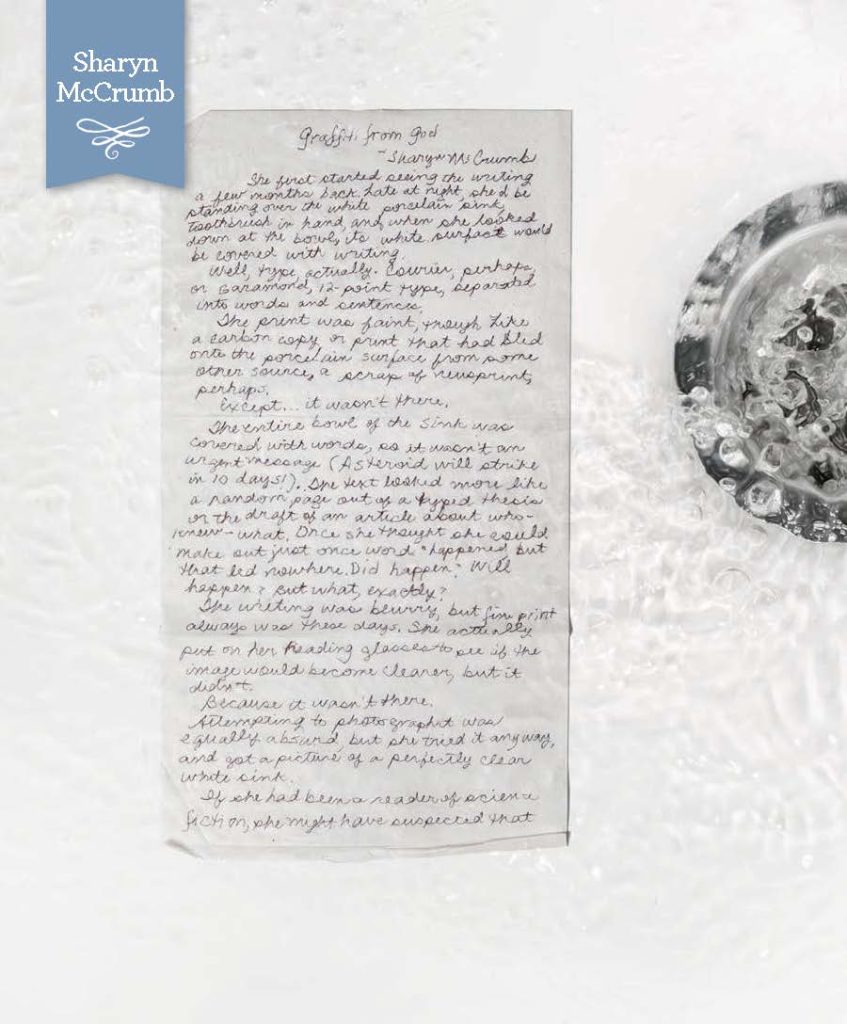 Sharyn
McCrumb
Graffiti from God
- Sharyn McCrumb
She first started seeing the writing
a few months back. Late at night, she'd be
standing over the white porcelain sink,
toothbrush in hand, and when she looked
down at the bowl, its white surface would
be covered with writing.
Well, type, actually. Courier, perhaps,
or Garamond, 12-point type, separated
into words and sentences.
The print was faint, though like
a carbon copy or print that had bled
onto the porcelain surface from some
other source, a scrap of newsprint,
perhaps.
Except... it wasn't there.
The entire bowl of the sink was
covered with words, so it wasn't an
urgent message (Asteroid will strike
in 10 days!). The text looked more like
a random page out of a typed thesis
or the draft of an article about who-
knew-what. Once she thought she could
make out just once word "happened, but
that led nowhere. Did happen? Will
happen? But what, exactly?
The writing was blurry, but fine print
always was these days. She actually
put on her reading glasses to see if the
image would become clearer, but it
didn't.
Because it wasn't there.
Attempting to photograph it was
equally absurd, but she tried it anyway,
and got a picture of a perfectly clear
white sink.
If she had been a reader of science
fiction, she might have suspected that